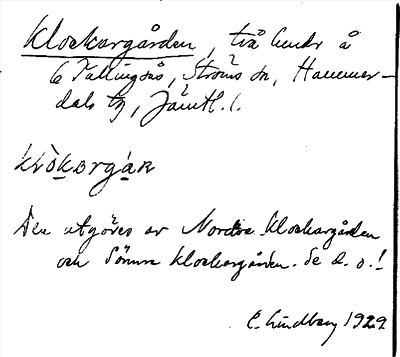 Klockargården, två hmdr å
6 Tullingsås, Ströms sn, Hammer-
dals tg, Jämtl. l.
klòkərgàṛ
Den utgöres av Norra Klockargården
och Södra Klockargården. Se d. o.!
C. Lindberg 1929